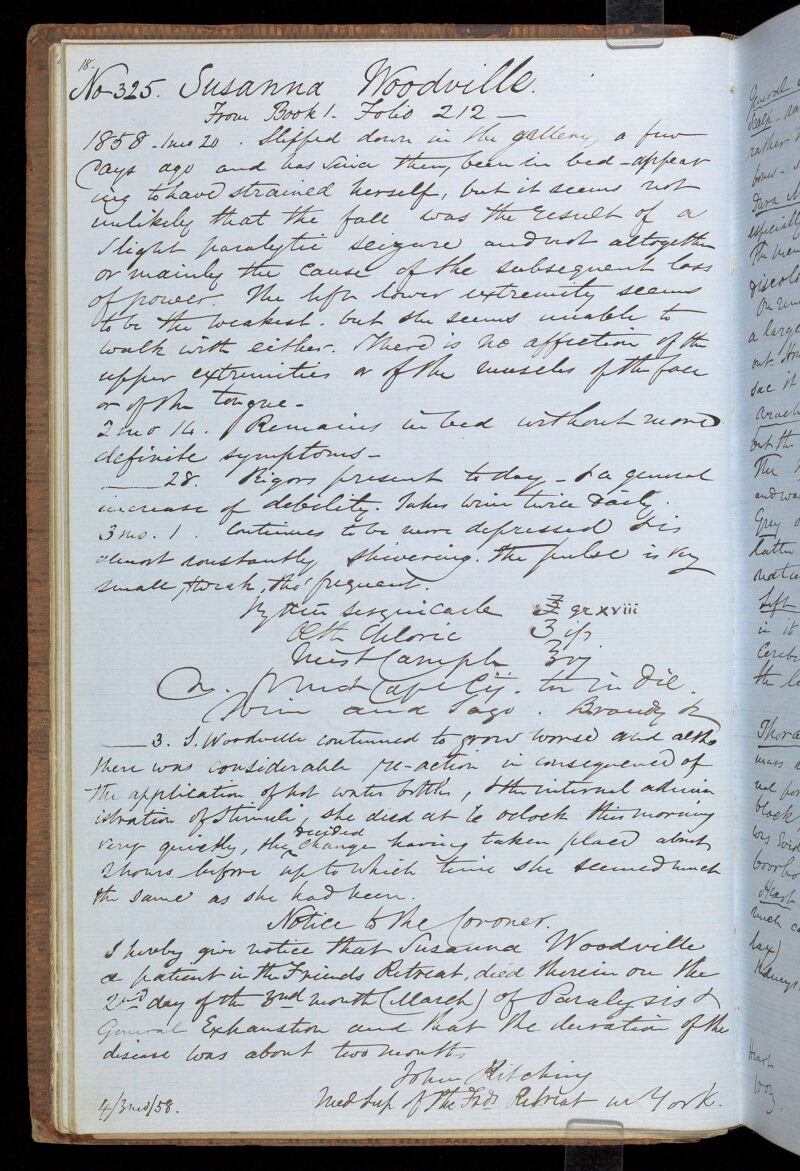 18.
No 325. Susanna Woodville.
From Book 1. Folio 212 —
1858 - 1 mo 20. Slipped down in the gallery a few
days ago and has since then, been in bed - appear
ing to have strained herself, but it seems not
unlikely that the fall was the result of a
slight paralytic seizure and not altogether
or mainly the cause of the subsequent loss
of power. The left lower extremity seems
to be the weakest. but she seems unable to
walk with either. There is no affection of the
upper extremities or of the muscles of the face
or of the tongue -
2 mo 14. Remains in bed without more
definite symptoms -
—— 28. Rigors present today - & a general
increase of debility. Takes wine twice daily.
3 mo. 1. Continues to be more depressed & is
almost constantly shivering. The pulse is very
small, & weak, tho' frequent.
sesquicarb gr xviii
Æth Chloric ʒ ifs
Mist Camph ʒvj
Capt Cij. in die.
Wine and Sago. Brandy
—— 3. S. Woodville continued to grow worse and altho
there was considerable re-action in consequence of
the application of hot water bottles, & the internal admin
istration of Stimuli, she died at 6 oclock this morning
very quietly, the decided change having taken place about
2 hours before up to which time she seemed much
the same as she had been.
Notice to the Coroner.
I hereby give notice that Susanna Woodville
a patient in the Friends Retreat, died therein on the
2nd day of the 3rd month (March) of Paralysis &
General Exhaustion and that the duration of the
disease was about two months
John Kitching
Med Sup of the Frds Retreat nr York.
4/3mo/58.
General
Scalp
rather
bones
Dura
especially
The
discolo
a large
out
sac it
arach
but the
The
and wa
Grey
latter
Left
in it
Cereb
the l
Thora
black
Heart
much
lax)
Kidneys
Heart